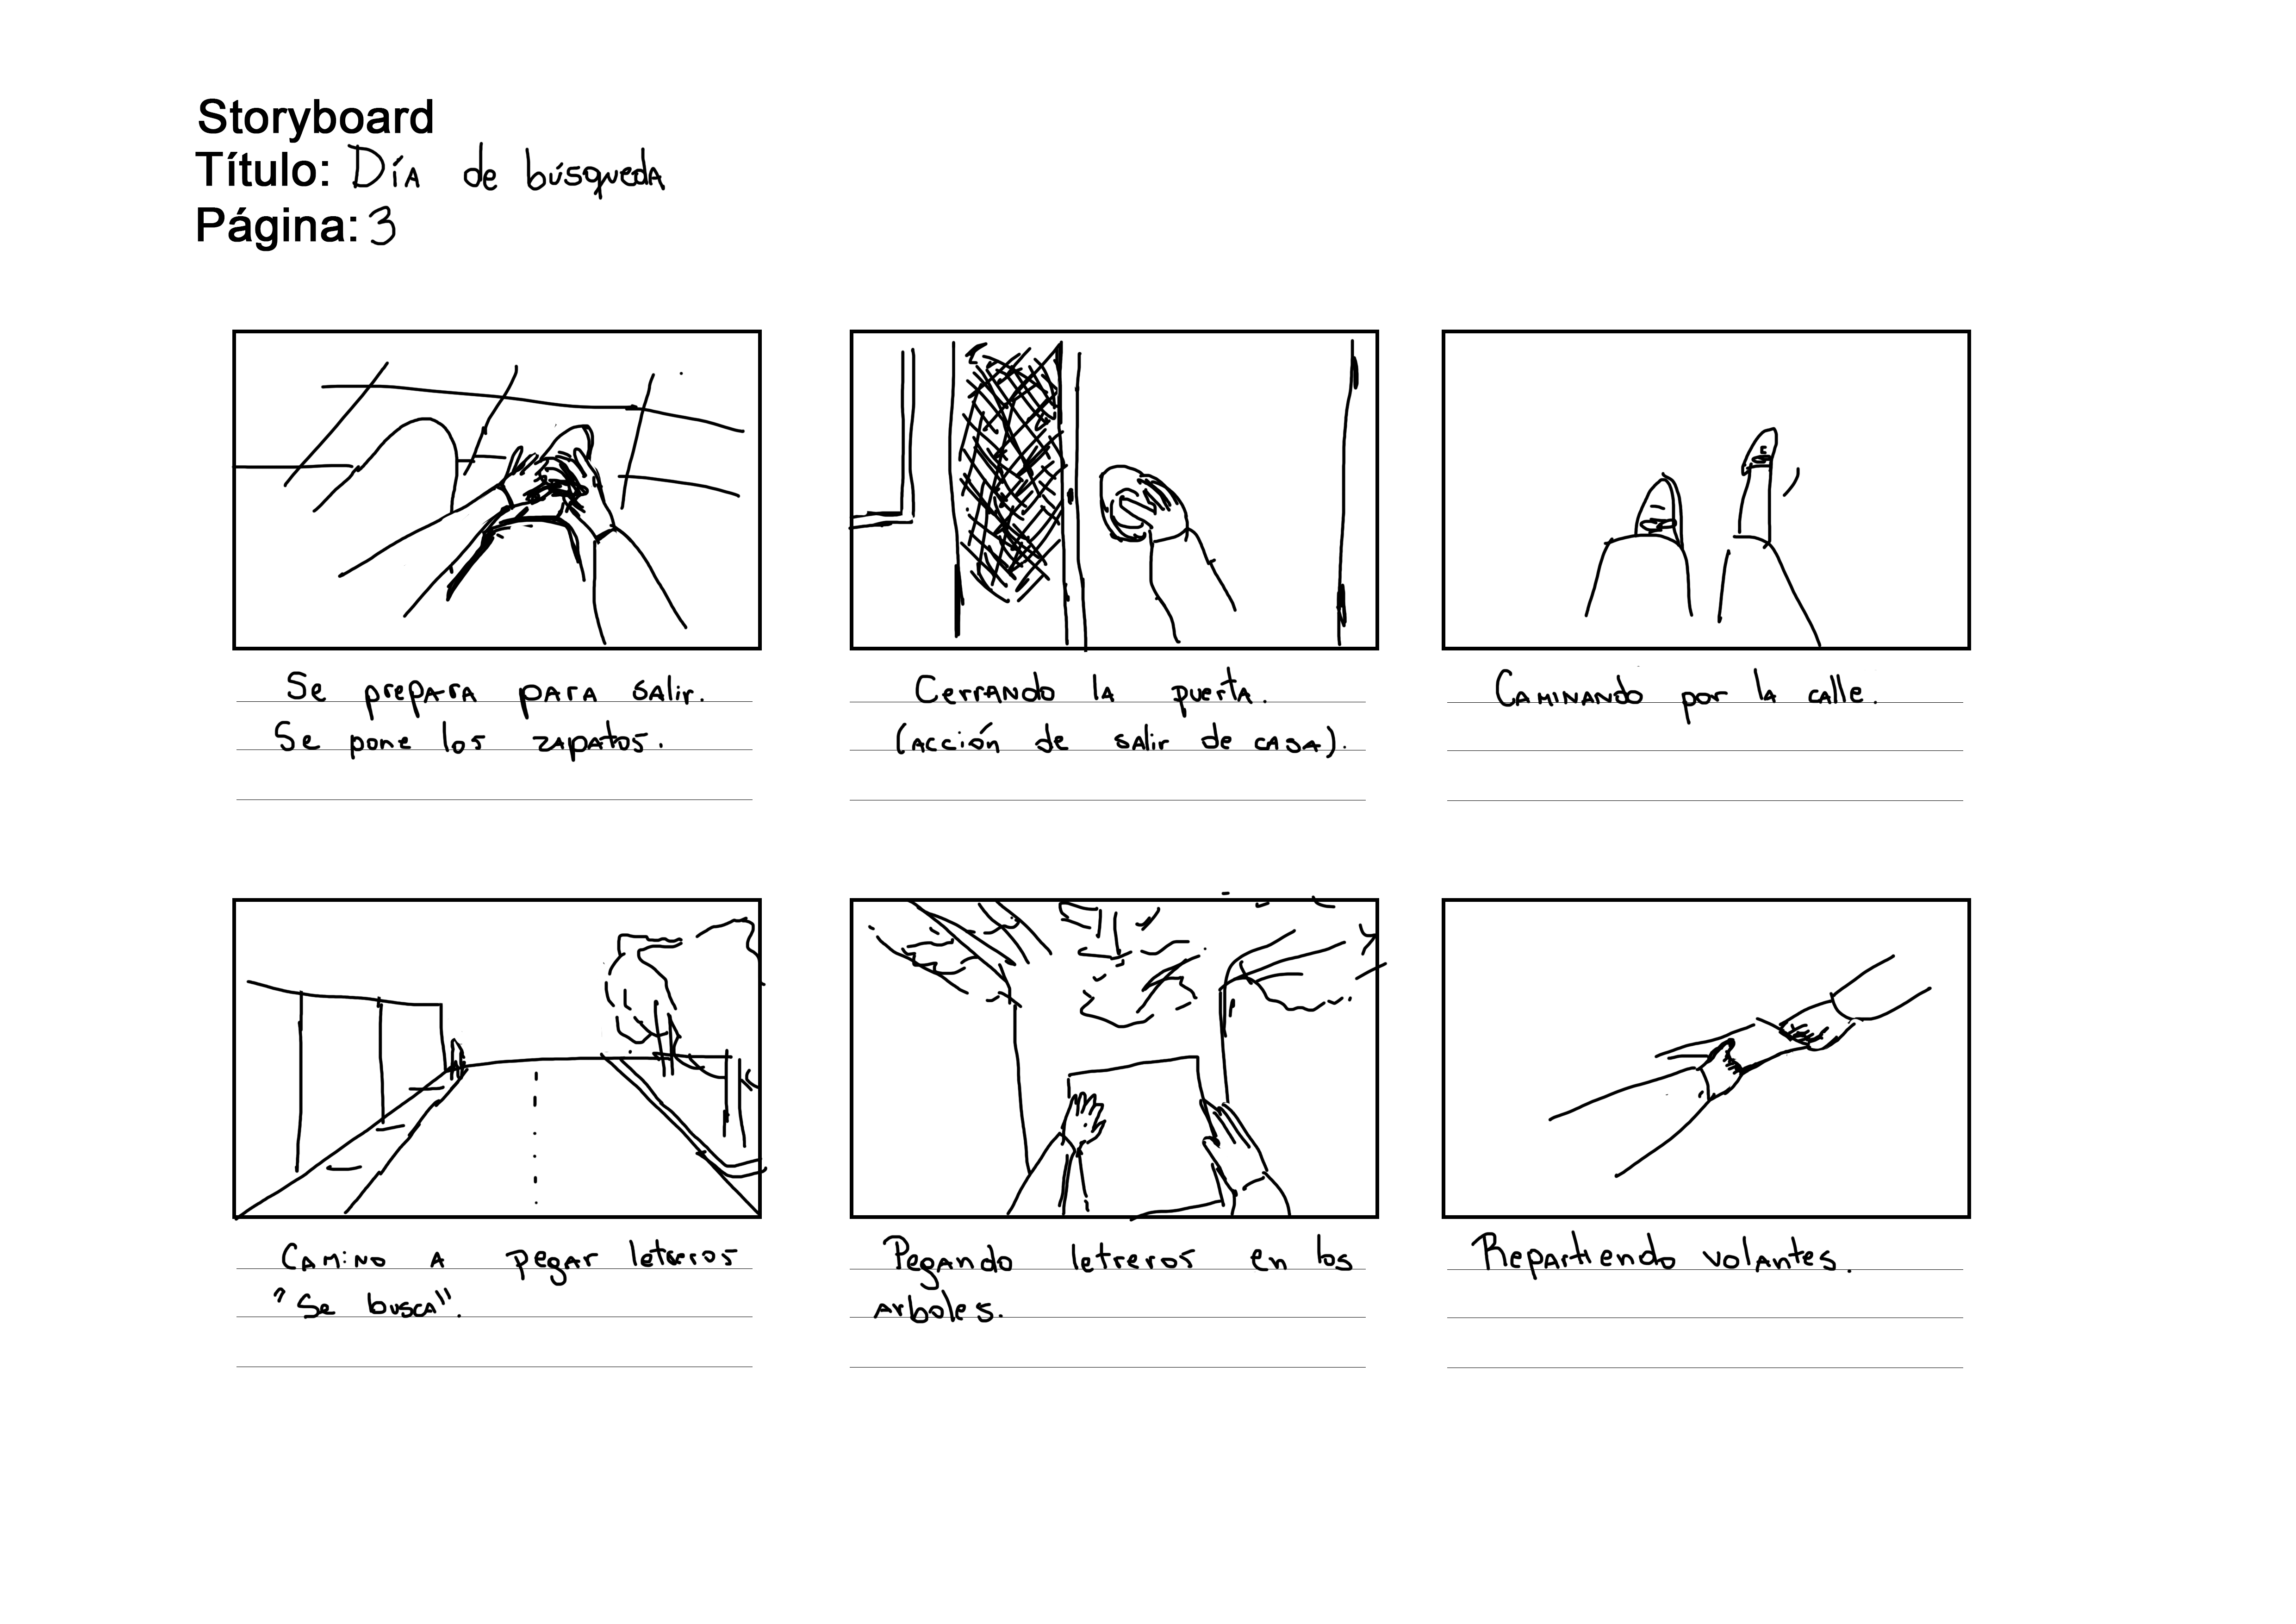 Storyboard
Título: Día de búsqueda
Página: 3
Se prepara para salir.
Se pone los zapatos.
Cerrando la puerta.
(acción de salir de casa).
Caminando por la calle.
Camino a pegar letreros
"Se busca".
Pegando letreros en los
arboles.
Repartiendo volantes.